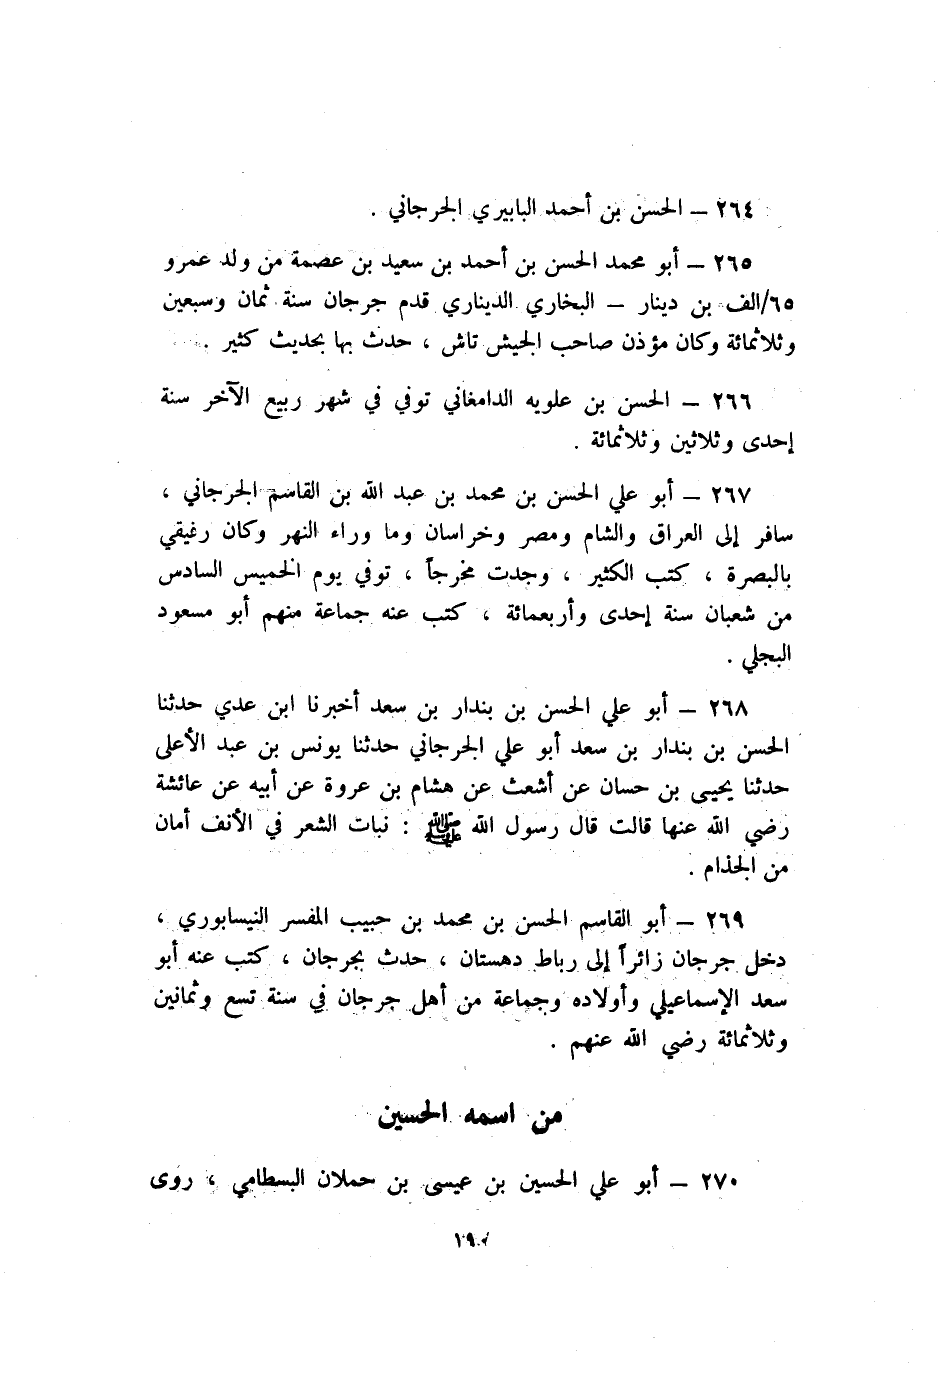 ٢٦٤ – الحسن بن أحمد البابيري الجرجاني .
٢٦٥ – أبو محمد الحسن بن أحمد بن سعيد بن عصمة من ولد عمرو
٦٥/الف بن دينار – البخاري الديناري قدم جرجان سنة ثمان وسبعين
وثلاثمائة وكان مؤذن صاحب الجيش تاش ، حدث بها بحديث كثير .
٢٦٦ – الحسن بن علويه الدامغاني توفي في شهر ربيع الآخر سنة
إحدى وثلاثين وثلاثمائة .
٢٦٧ – أبو علي الحسن بن محمد بن عبد الله بن القاسم الجرجاني ،
سافر إلى العراق والشام ومصر وخراسان وما وراء النهر وكان رغيقي
بالبصرة ، كتب الكثير ، وجدت مخرجاً ، توفي يوم الخميس السادس
من شعبان سنة إحدى وأربعمائة ، كتب عنه جماعة منهم أبو مسعود
البجلي .
٢٦٨ – أبو علي الحسن بن بندار بن سعد أخبرنا ابن عدي حدثنا
الحسن بن بندار بن سعد أبو علي الجرجاني حدثنا يونس بن عبد الأعلى
حدثنا يحيى بن حسان عن أشعث عن هشام بن عروة عن أبيه عن عائشة
رضي الله عنها قالت قال رسول الله ﷺ : نبات الشعر في الأنف أمان
من الجذام .
٢٦٩ – أبو القاسم الحسن بن محمد بن حبيب المفسر النيسابوري ،
دخل جرجان زائراً إلى رباط دهستان ، حدث بجرجان ، كتب عنه أبو
سعد الإسماعيلي وأولاده وجماعة من أهل جرجان في سنة تسع وثمانين
وثلاثمائة رضي الله عنهم .
من اسمه الحسين
٢٧٠ – أبو علي الحسين بن عيسى بن حملان البسطامي ، روى